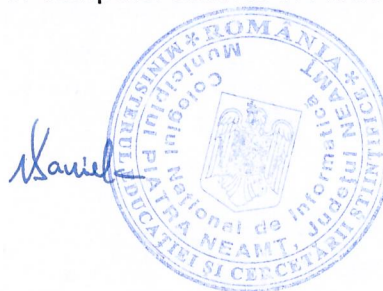 * ROMÂNIA *
MINISTERUL EDUCAȚIEI ȘI CERCETĂRII ȘTIINȚIFICE
Colegiul Național de Informatică
Municipiul PIATRA NEAMȚ, Județul NEAMȚ